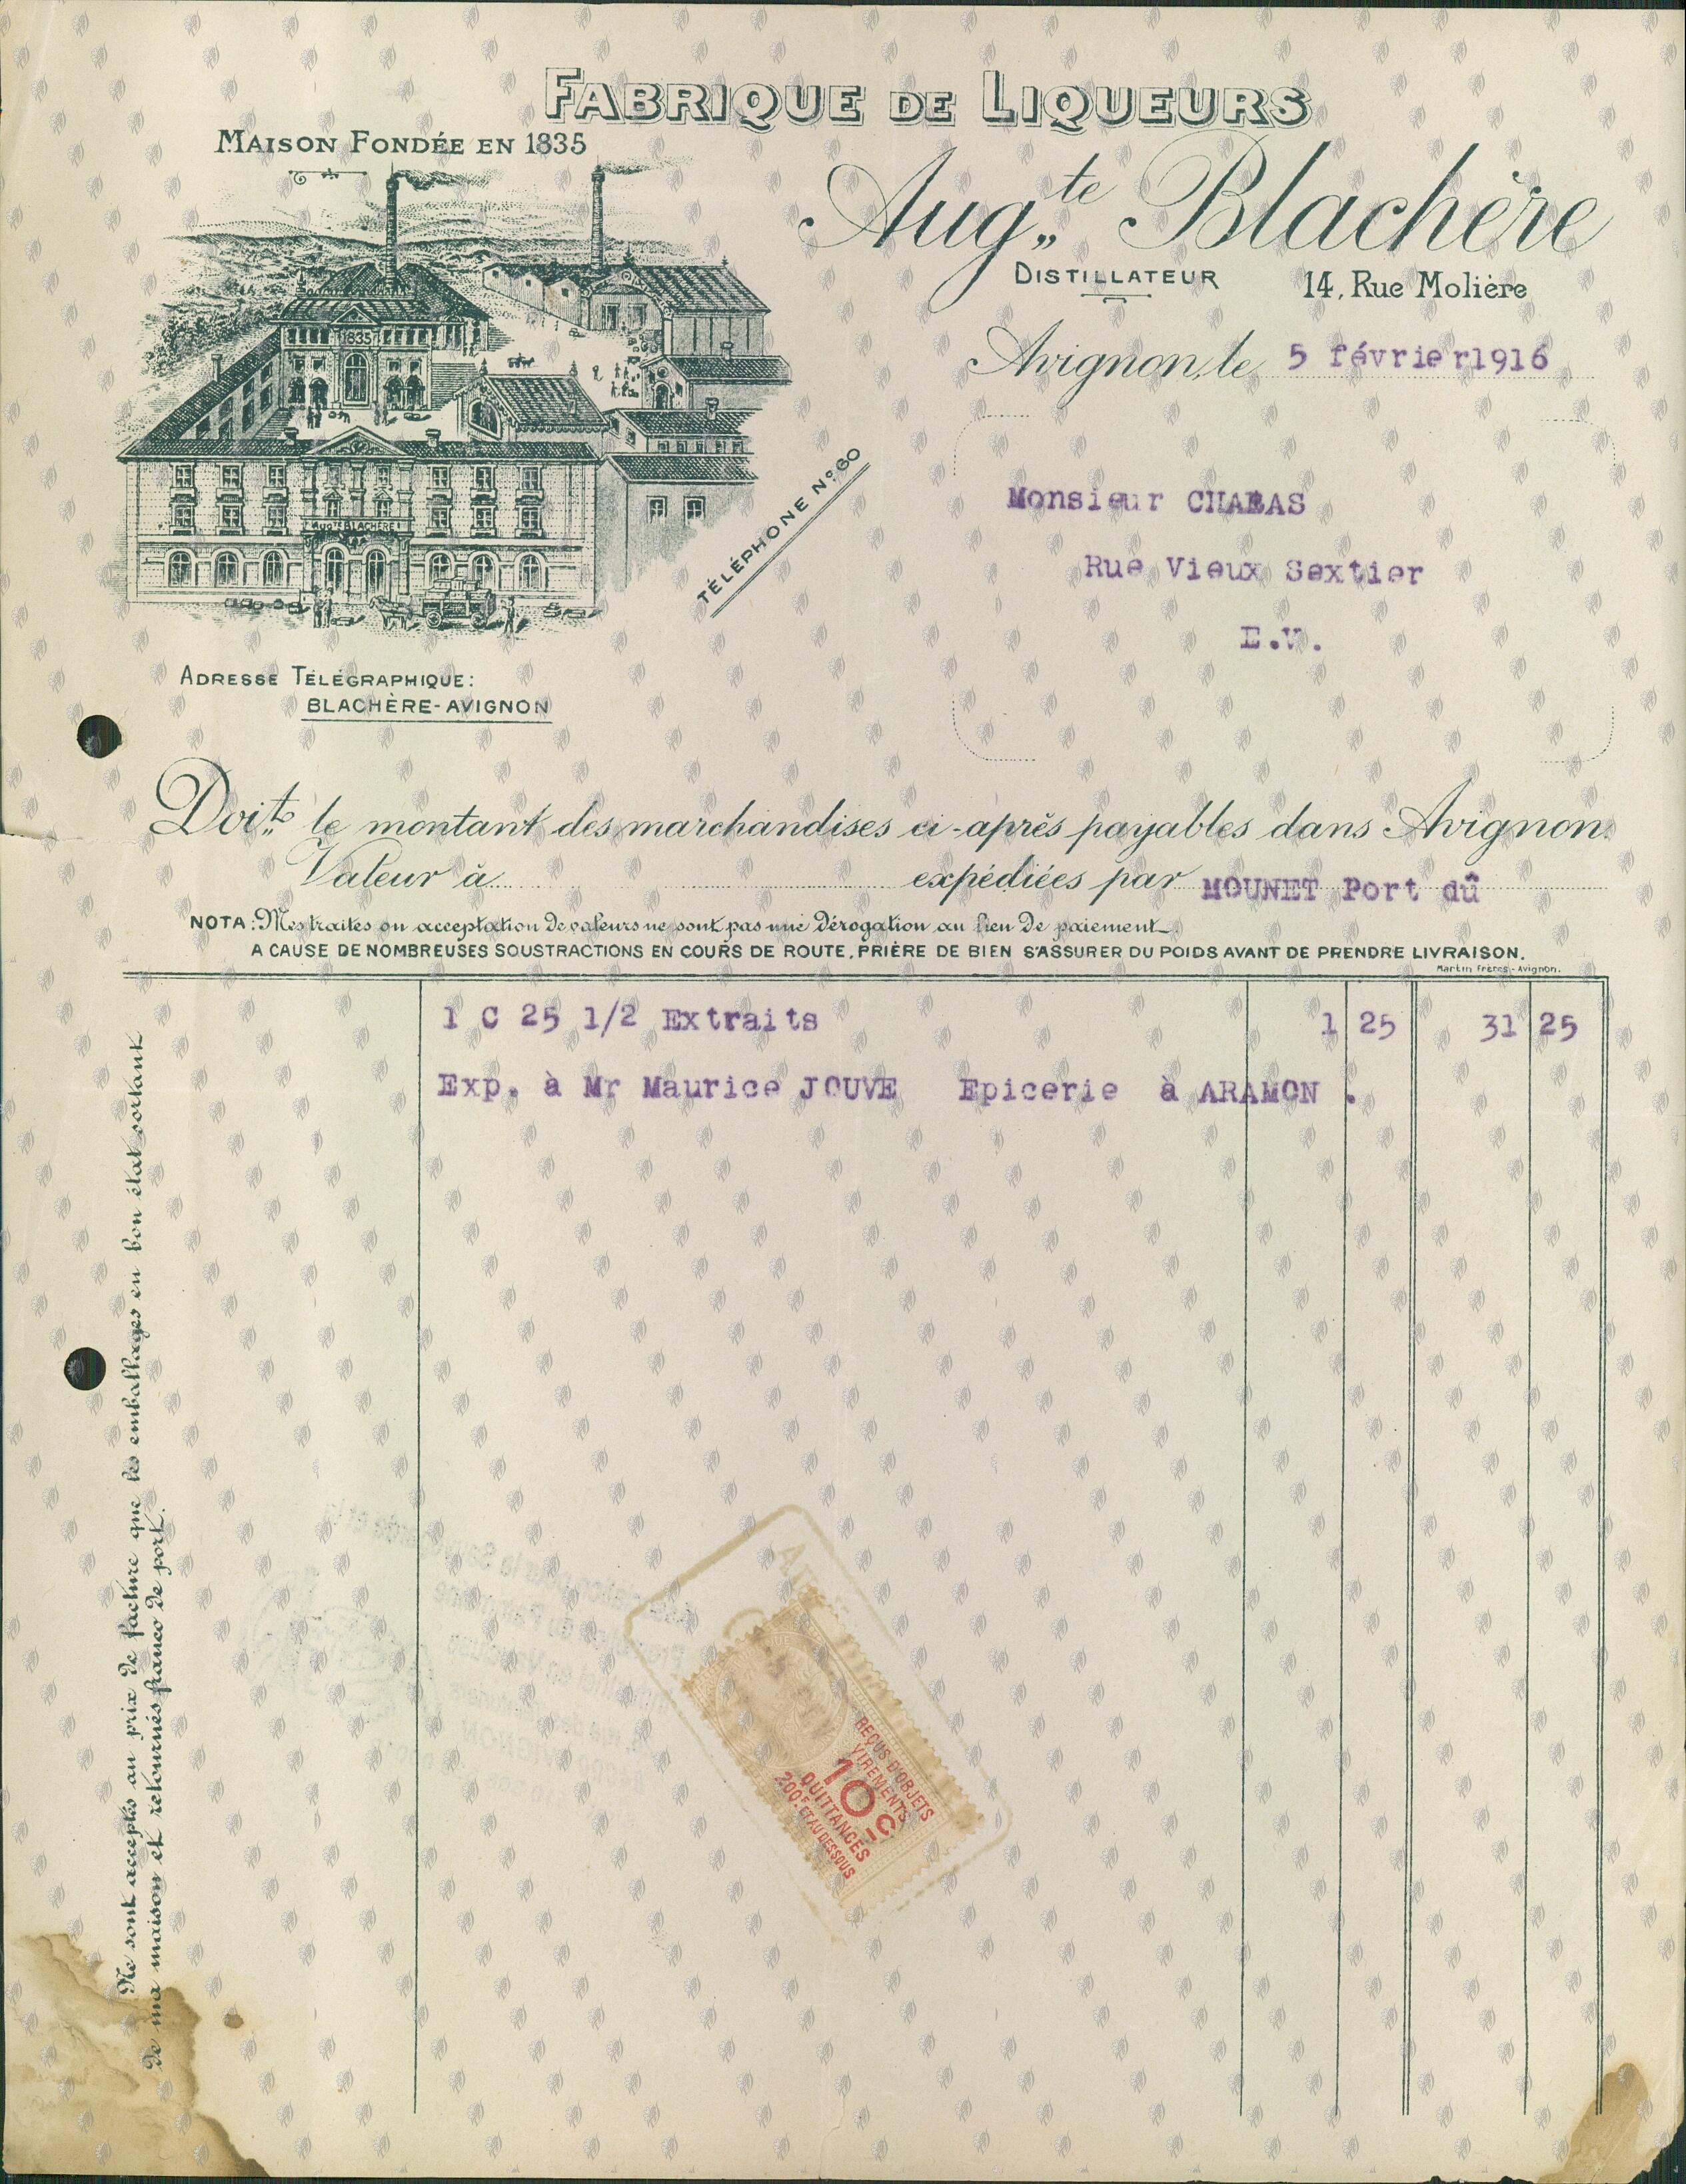 FABRIQUE DE LIQUEURS
MAISON FONDÉE EN 1835
Aug.te Blachère
DISTILLATEUR 14, Rue Molière
Avignon, le 5 février1916
1835
AUG.TE BLACHÈRE
TÉLÉPHONE N°. 60
Monsieur CHABAS
Rue Vieux Sextier
E.V.
ADRESSE TÉLÉGRAPHIQUE:
BLACHÈRE-AVIGNON
Doit le montant des marchandises ci-après payables dans Avignon.
Valeur à expédiées par MOUNET Port dû
NOTA: Mes traites ou acceptation de valeurs ne sont pas une dérogation au lieu de paiement.
A CAUSE DE NOMBREUSES SOUSTRACTIONS EN COURS DE ROUTE, PRIÈRE DE BIEN S'ASSURER DU POIDS AVANT DE PRENDRE LIVRAISON.
Martin Frères - Avignon.
1 C 25 1/2 Extraits 1 25 31 25
Exp. à Mr Maurice JOUVE Epicerie à ARAMON .
Ne sont acceptés au prix de facture que les emballages en bon état sortant
de ma maison et retournés franco de port.
REÇUS D'OBJETS
VIREMENTS
10c
QUITTANCES
200F ET AU DESSOUS